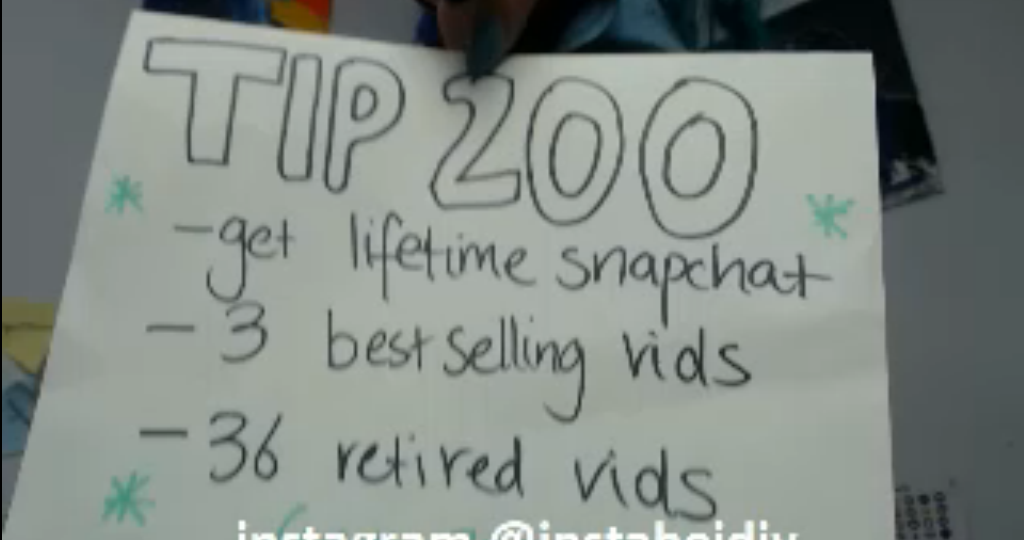 TIP 200
- get lifetime snapchat
- 3 best selling vids
- 36 retired vids
instagram